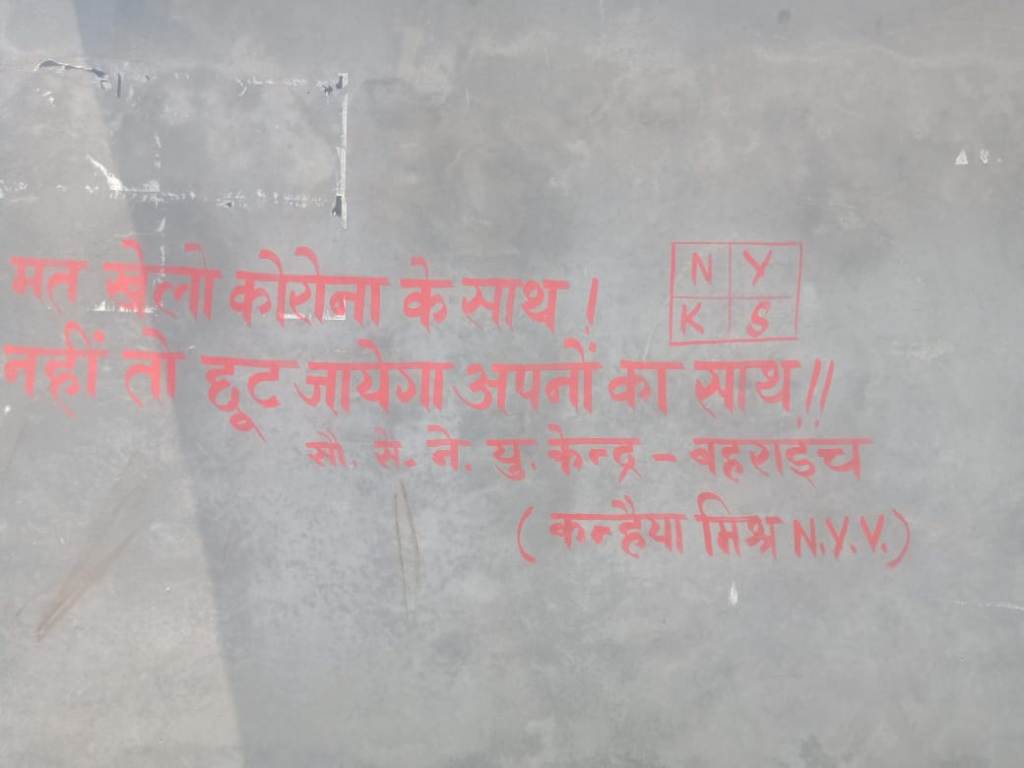 मत खेलो कोरोना के साथ !
N Y
K S
नहीं तो छूट जायेगा अपनों का साथ !!
सौ. से. ने. यु. केन्द्र - बहराइच
( कन्हैया मिश्र N.Y.V.)